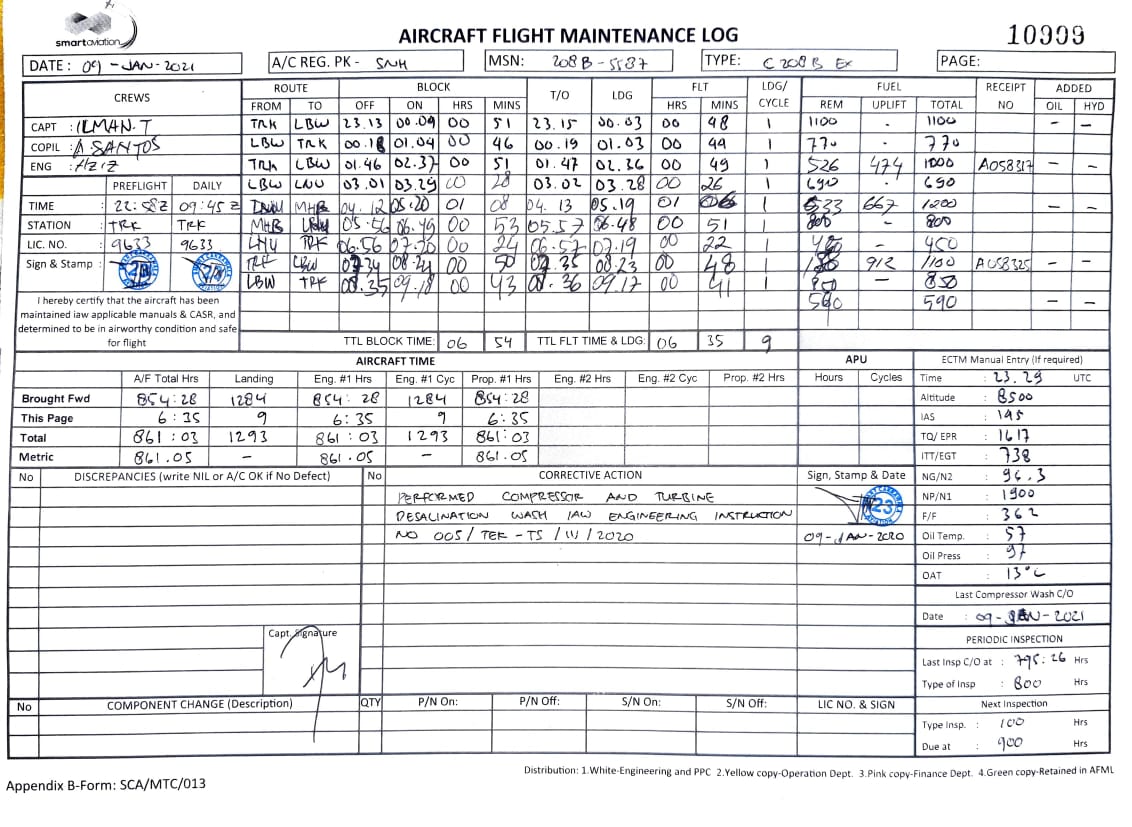 smartaviation
AIRCRAFT FLIGHT MAINTENANCE LOG
10999
DATE : 09 - JAN - 2021
A/C REG. PK - SNH
MSN: 208B - 5587
TYPE: C 208 B EX
PAGE:
CREWS ROUTE BLOCK T/O LDG FLT LDG/CYCLE FUEL RECEIPT NO ADDED
FROM TO OFF ON HRS MINS HRS MINS REM UPLIFT TOTAL OIL HYD
CAPT : ILMAN.T TRK LBW 23.13 00.09 00 51 23.15 00.03 00 48 1 1100 . 1100 - -
COPIL : A SANTOS LBW TRK 00.18 01.04 00 46 00.19 01.03 00 44 1 770 . 770
ENG : AZIZ TRK LBW 01.46 02.37 00 51 01.47 02.36 00 49 1 526 474 1000 A058317 - -
PREFLIGHT DAILY LBW LNU 03.01 03.29 00 28 03.02 03.28 00 26 1 690 - 690
TIME : 22:58Z 09:45Z MHB 04.12 05.20 01 08 04.13 05.19 01 06 1 533 667 1200 - -
STATION : TRK TRK MHB LNU 05.56 06.49 00 53 05.57 06.48 00 51 1 800 - 800
LIC. NO. : 9633 9633 LNU TRK 06.56 07.20 00 24 06.57 07.19 00 22 1 450 - 450
Sign & Stamp : TRK LBW 07.34 08.24 00 50 07.35 08.23 00 48 1 912 1100 A058325 - -
LBW TRK 08.35 09.18 00 43 08.36 09.17 00 41 1 850 - 850
590 590 - -
I hereby certify that the aircraft has been
maintained iaw applicable manuals & CASR, and
determined to be in airworthy condition and safe
for flight
TTL BLOCK TIME: 06 54 TTL FLT TIME & LDG: 06 35 9
AIRCRAFT TIME APU ECTM Manual Entry (If required)
A/F Total Hrs Landing Eng. #1 Hrs Eng. #1 Cyc Prop. #1 Hrs Eng. #2 Hrs Eng. #2 Cyc Prop. #2 Hrs Hours Cycles Time : 23.29 UTC
Brought Fwd 854:28 1284 854:28 1284 854:28 Altitude : 8500
This Page 6:35 9 6:35 9 6:35 IAS : 145
Total 861:03 1293 861:03 1293 861:03 TQ/ EPR : 1617
Metric 861.05 - 861.05 - 861.05 ITT/EGT : 738
No DISCREPANCIES (write NIL or A/C OK if No Defect) No CORRECTIVE ACTION Sign, Stamp & Date NG/N2 : 96.3
PERFORMED COMPRESSOR AND TURBINE NP/N1 : 1900
DESALINATION WASH IAW ENGINEERING INSTRUCTION 23 F/F : 362
NO 005 / TEK - TS / IV / 2020 09-JAN-2020 Oil Temp. : 57
Oil Press : 97
OAT : 13°C
Last Compressor Wash C/O
Date : 09-JAN-2021
Capt. Signature
PERIODIC INSPECTION
Last Insp C/O at : 795:26 Hrs
Type of Insp : 800 Hrs
No COMPONENT CHANGE (Description) QTY P/N On: P/N Off: S/N On: S/N Off: LIC NO. & SIGN Next Inspection
Type Insp. : 100 Hrs
Due at : 900 Hrs
Distribution: 1.White-Engineering and PPC 2.Yellow copy-Operation Dept. 3.Pink copy-Finance Dept. 4.Green copy-Retained in AFML
Appendix B-Form: SCA/MTC/013